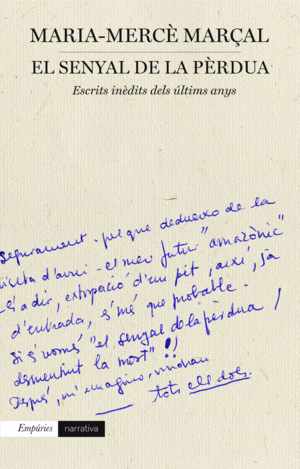 MARIA-MERCÈ MARÇAL
EL SENYAL DE LA PÈRDUA
Escrits inèdits dels últims anys
segurament - pel que dedueixo de la
visita d'avui - el meu futur "amazònic"
és a dir, extirpació d'un pit, així, ja
d'entrada, és més que probable.
Si és només "el senyal de la pèrdua /
desmentint la mort"!!
Després, m'imagino, vindran
tots els dols.
Empúries narrativa